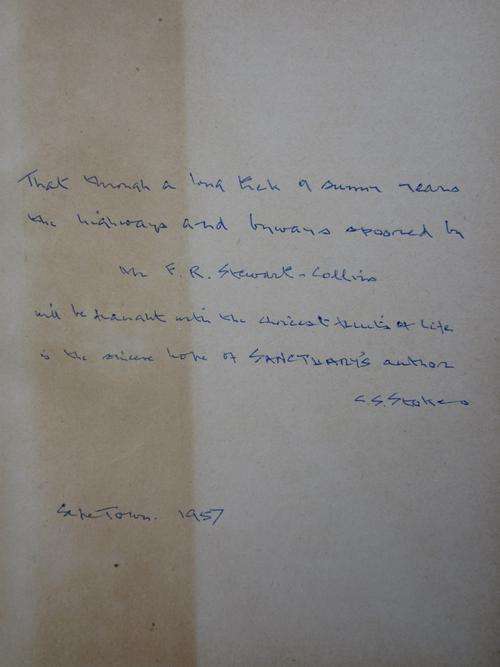 That through a long trek of sunny years
the highways and byways spoored by
Mr F. R. Stewart-Collins
will be fragrant with the choicest scents of life
is the sincere hope of SANCTUARY'S author
C.S. Stokes
Cape Town. 1957